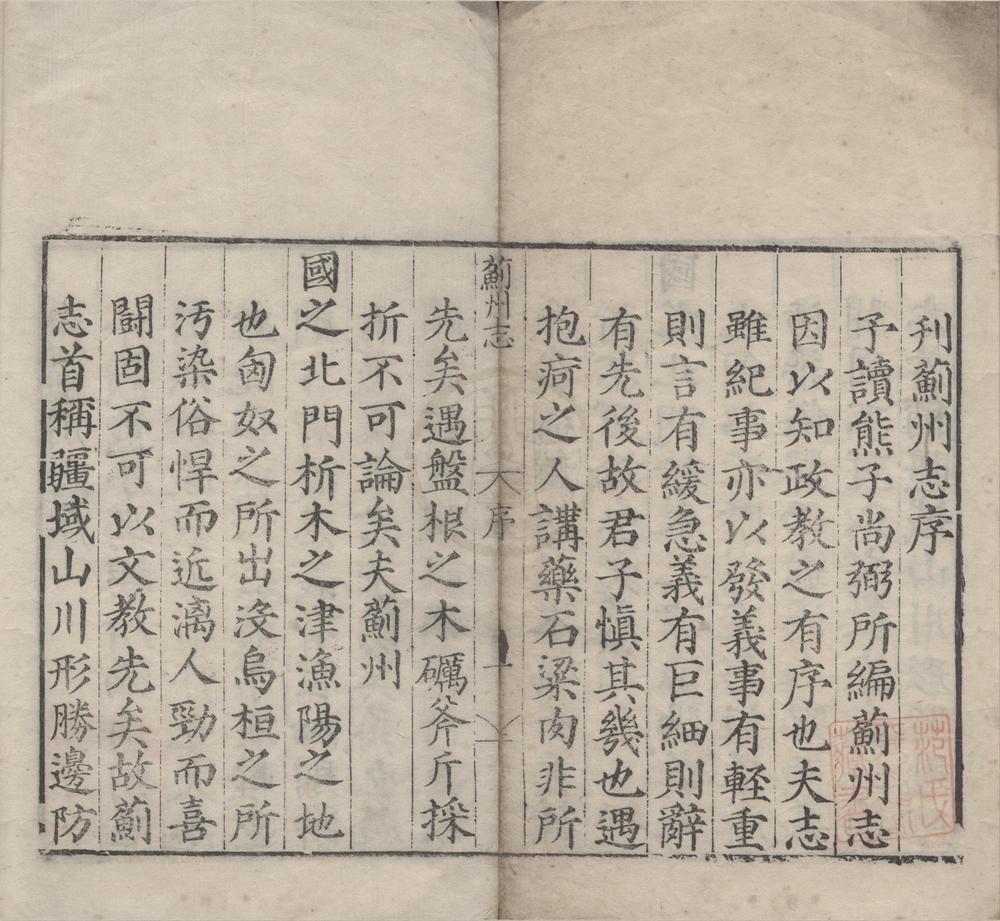 刋薊州志序
予讀熊子尚弼所編薊州志
因以知政敎之有序也夫志
雖紀事亦以發義事有輕重
則言有緩急義有巨細則辭
有先後故君子慎其幾也遇
抱疴之人講藥石梁肉非所
薊州志
序
一
先矣遇盤根之木礪斧斤採
折不可論矣夫薊州
國之北門析木之津漁陽之地
也匈奴之所出沒烏桓之所
汚染俗悍而近漓人勁而喜
鬪固不可以文敎先矣故薊
志首稱疆域山川形勝邊防
范氏